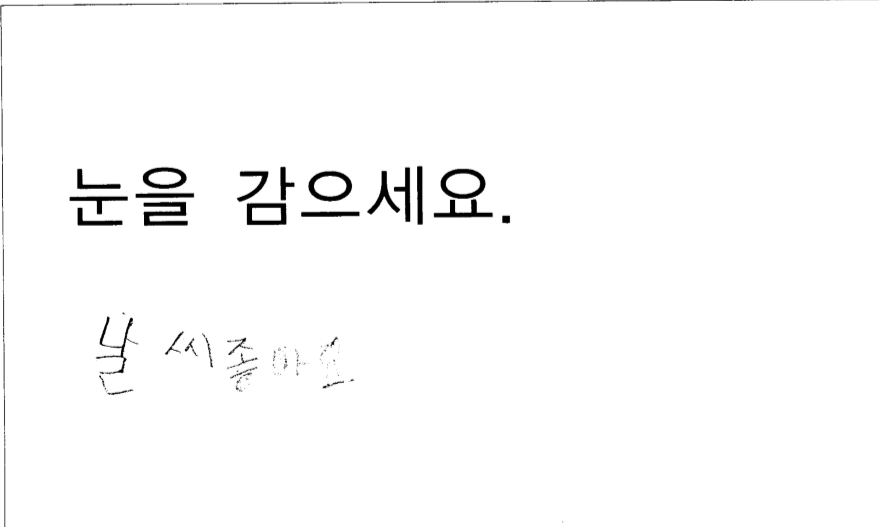 눈을 감으세요.
날씨좋아요